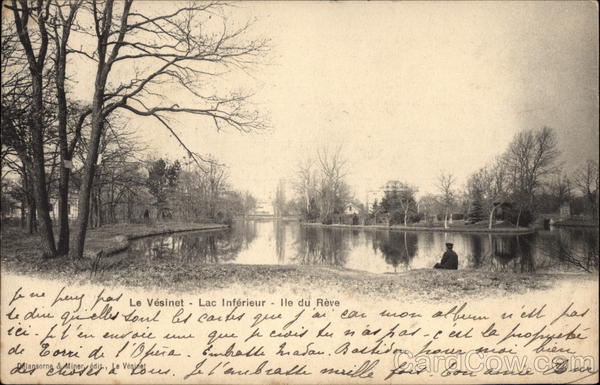 Le Vésinet - Lac Inférieur - Ile du Rêve
je ne peux pas
te dire quelles sont les cartes que j'ai car mon album n'est pas
ici - je t'en envoie une que je crois tu n'as pas - c'est la propriété
de de l'Opéra. Embrasse Madou. pour moi bien
Delansorne & Miner, édit., Le Vésinet
des choses Je t'embrasse mille fois. Ton amie
CardCow.com